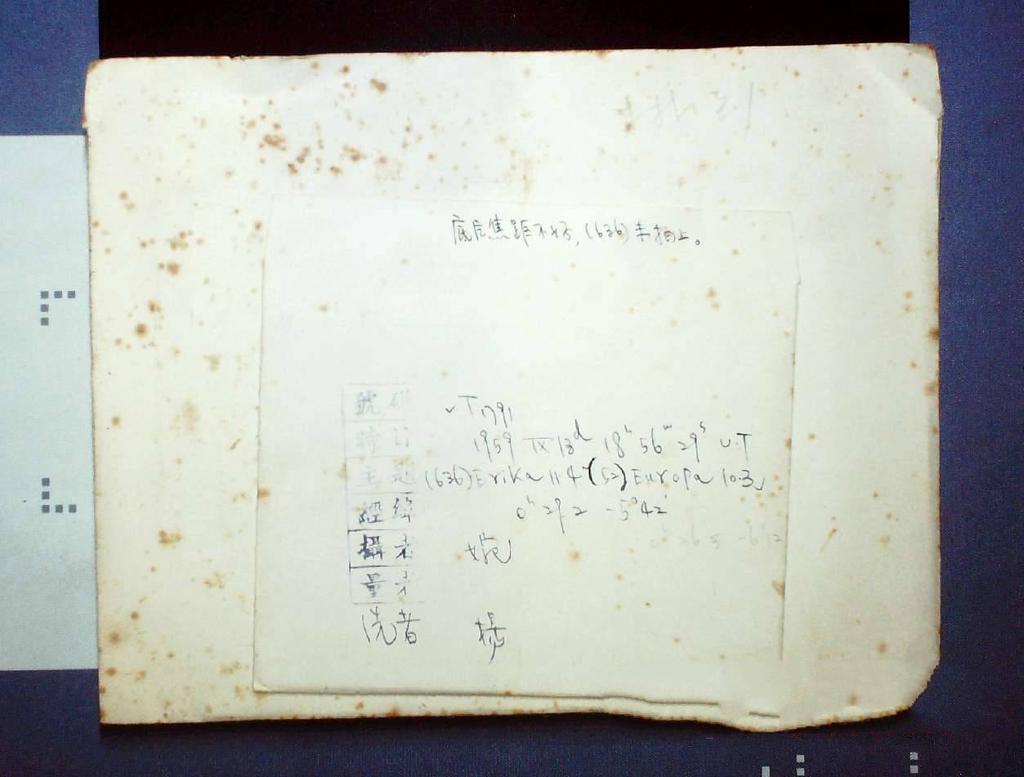 底片焦距不好,(636)未拍上。
號
T1791
時 日 1959 IX 13d 18h 56m 29s U.T
主 題 (636)Erika 11.4 (52)Europa 10.3
經緯 0h 29.2 -5°42'
攝者 婉
量者
洗者 楊